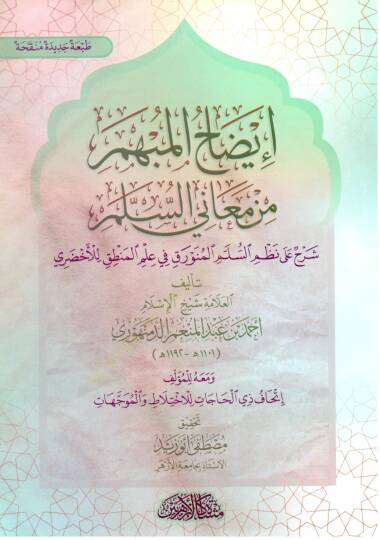 طَبْعَةٌ جَدِيدَةٌ مُنَقَّحَةٌ
إِيضَاحُ المُبْهَمِ
مِنْ مَعَانِي السُّلَّمِ
شَرْحٌ عَلَى نَظْمِ السُّلَّمِ المُنَوْرَقِ فِي عِلْمِ المَنْطِقِ لِلْأَخْضَرِي
تأليف
العلامة شيخ الإسلام
أحمد بن عبد المنعم الدمنهوري
(١١٠١هـ - ١١٩٢هـ)
وَمَعَهُ لِلْمُؤَلِّفِ
إِتْحَافُ ذِي الْحَاجَاتِ لِلِاخْتِلَاطِ وَالْمُوَجَّهَاتِ
تحقيق
مصطفى أبو زيد
الأستاذ بجامعة الأزهر